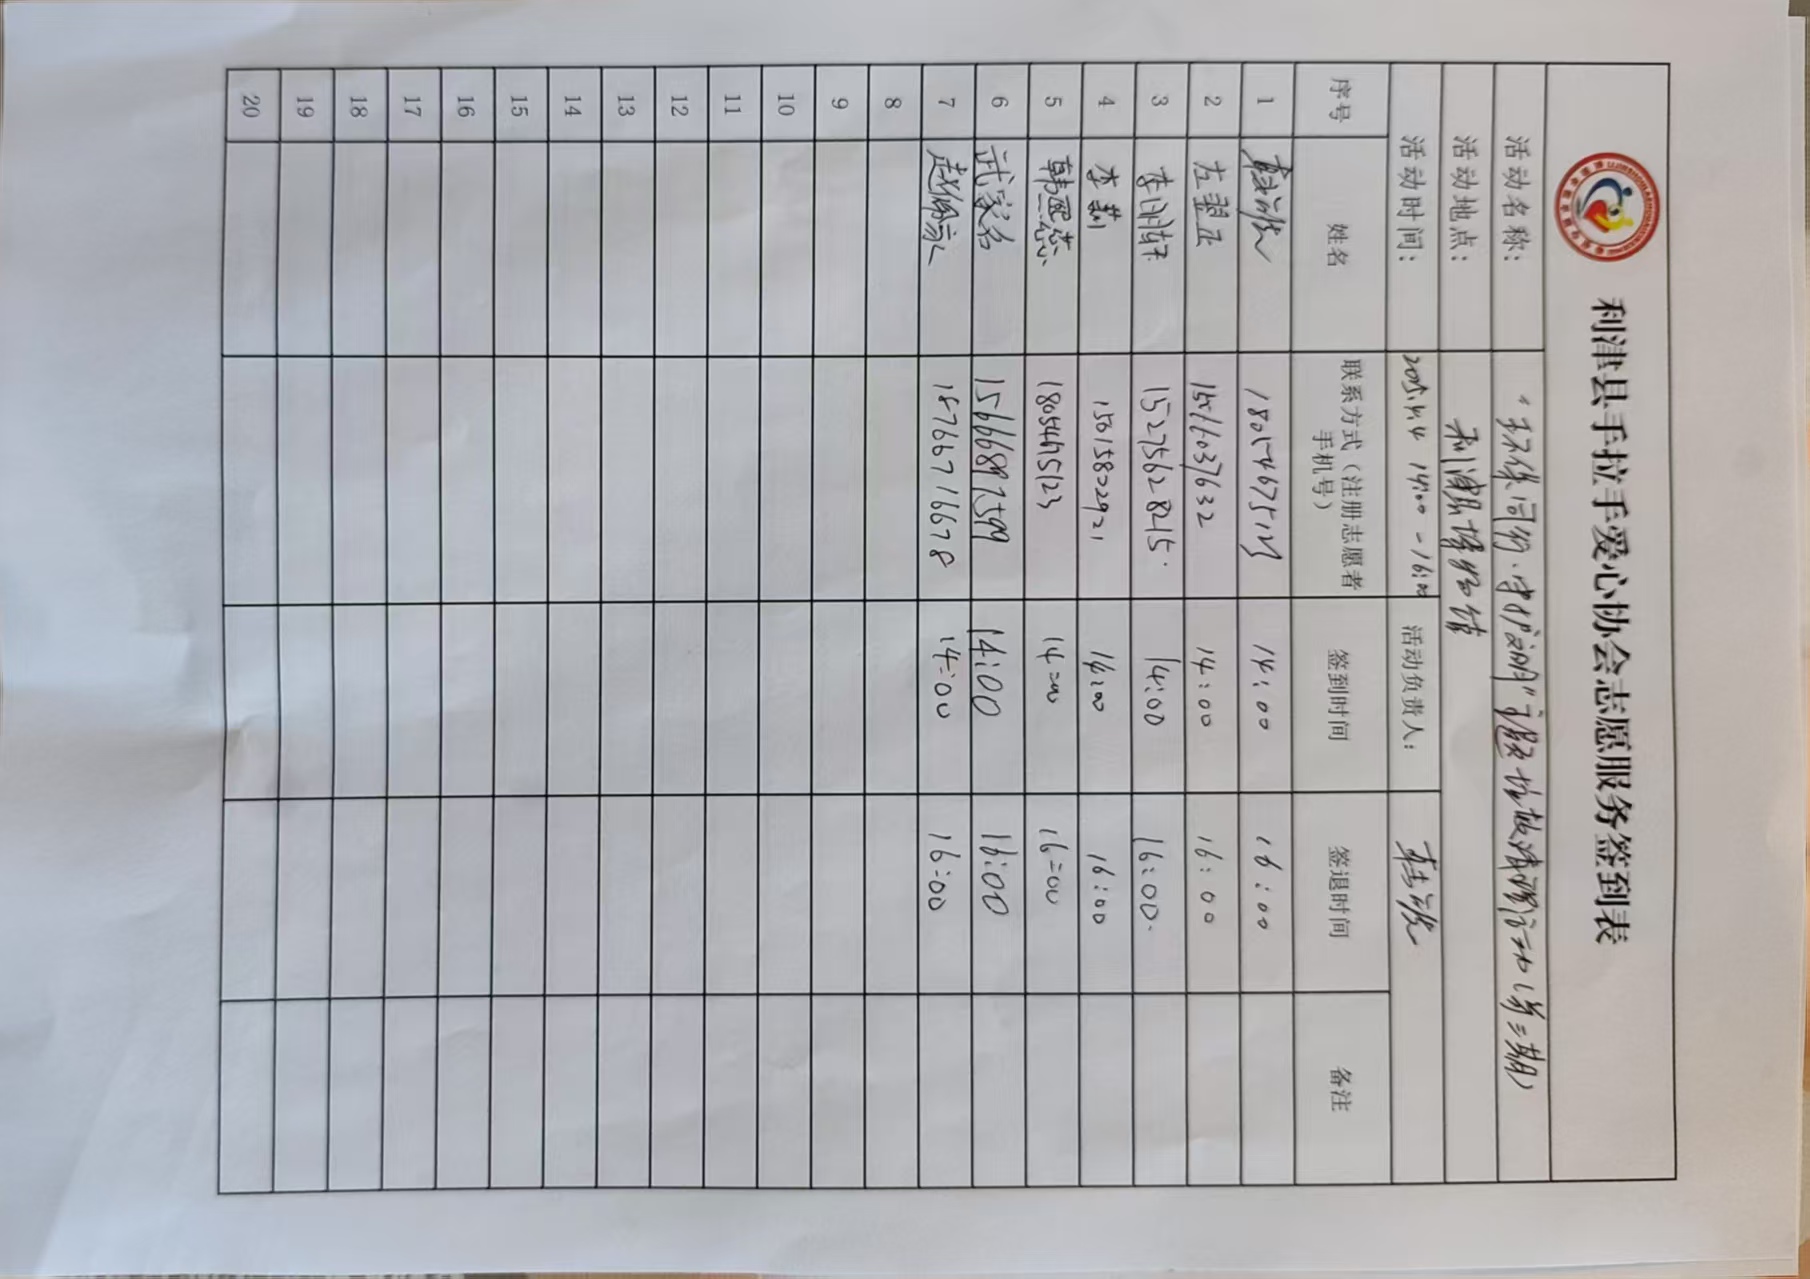 利津县手拉手爱心协会志愿服务签到表
活动名称： "环保同行·守护文明" 垃圾清理活动（第三期）
活动地点： 利津县博物馆
活动时间： 14:00-16:00 活动负责人：
序号 姓名 联系方式（注册志愿者手机号） 签到时间 签退时间 备注
1 14:00 16:00
2 左翠正 15166037632 14:00 16:00
3 15275628215 14:00 16:00
4 李莉 15615802921 14:00 16:00
5 韩熙志 18054675123 14:00 16:00
6 武家名 15666897599 14:00 16:00
7 18766716678 14:00 16:00
8
9
10
11
12
13
14
15
16
17
18
19
20